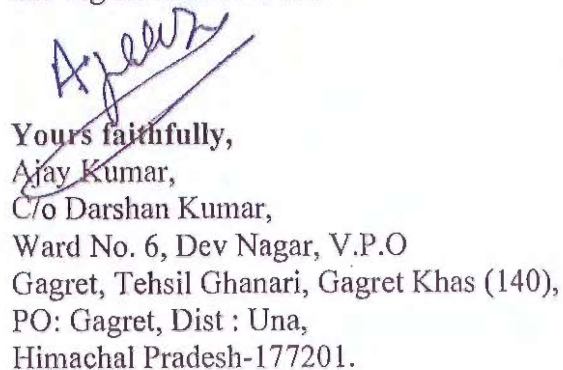 Yours faithfully,
Ajay Kumar,
C/o Darshan Kumar,
Ward No. 6, Dev Nagar, V.P.O
Gagret, Tehsil Ghanari, Gagret Khas (140),
PO: Gagret, Dist : Una,
Himachal Pradesh-177201.